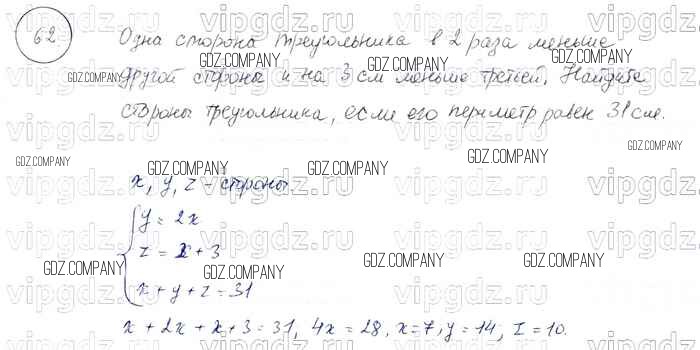 62
Одна сторона треугольника в 2 раза меньше
другой стороны и на 3 см меньше третьей. Найдите
стороны треугольника, если его периметр равен 31 см.
x, y, z - стороны.
y = 2x
z = x + 3
x + y + z = 31
x + 2x + x + 3 = 31, 4x = 28, x = 7, y = 14, z = 10.
vipgdz.ru
GDZ.COMPANY